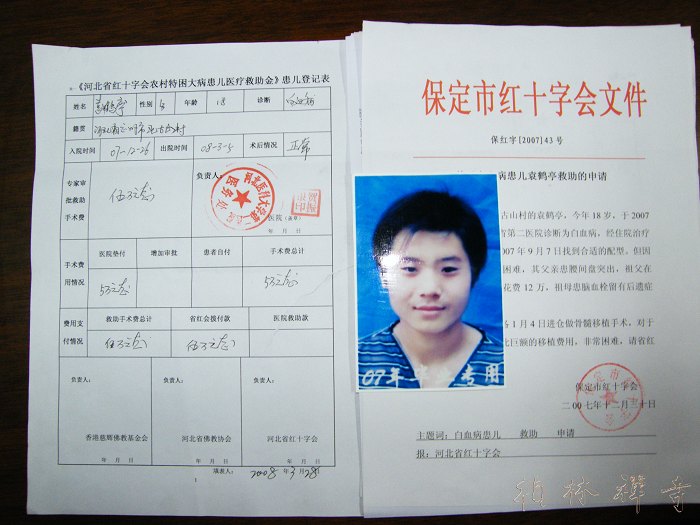 《河北省红十字会农村特困大病患儿医疗救助金》患儿登记表
姓名 性别 年龄 18 诊断 白血病
籍贯
入院时间 07-12-26 出院时间 08-3-5 术后情况 正常
专家审批救助手术费 伍万元 负责人： 医院（盖章）
年 月 日
手术费用情况 医院垫付 增加审批 患者自付 手术费总计
5万元 5万元
费用支付情况 救助手术费总计 省红会拨付款 医院救助款
伍万元 伍万元
负责人： 负责人： 负责人：
香港慈辉佛教基金会 河北省佛教协会 河北省红十字会
年 月 日 年 月 日 年 月 日
填表人： 2008 年 3 月 28
1
保定市红十字会文件
保红字［2007］43 号
病患儿袁鹤亭救助的申请
古山村的袁鹤亭，今年 18 岁，于 2007
省第二医院诊断为白血病，经住院治疗
007 年 9 月 7 日找到合适的配型。但因
困难，其父亲患腰间盘突出，祖父在
花费 12 万，祖母患脑血栓留有后遗症
1 月 4 日进仓做骨髓移植手术，对于
比巨额的移植费用，非常困难，请省红
保定市红十字会
二00七年十二月三十日
主题词：白血病患儿 救助 申请
报：河北省红十字会
07年 专用
柏林禅寺